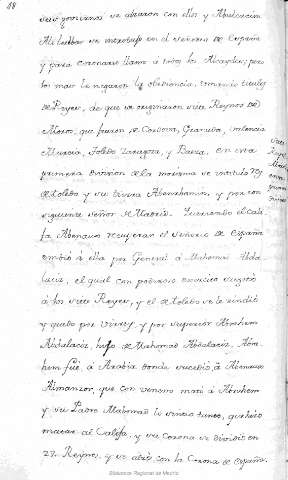 88
se alzaron con ellos y Abulcacim
Abilhabar se introdujo en el Señorio de España
y para coronarse llamo a todos los Alcaydes; pero
los mas le negaron la obediencia, tomaron titulos
de Reyes, de que se originaron siete Reynos de
Moros, que fueron de Cordova, Granada, Valencia
Murcia, Toledo Zaragoza, y Baeza, en esta
primera division de la morisma se instituló Rey
de Toledo y su tierra Abenrahanin, y por con
siguiente señor de Madrid. Queriendo el Cali
fa Abenacin recuperar el señorio de España
embió á ella por General á Mahomad Abda
laciz, el qual con poderoso exercito sugetó
á los siete Reyes, y el de toledo se le rindió
y quedo por Virrey, y por superior Abrahem
Abdalaciz, hijo de Mahomad Abdalaciz, Abra
hem fué, á Arabia donde sucedió, á
Almanzor, que con veneno mató á Abrahem
y su Padre Mahomad lo sintio tanto, que hizo
matar al Califa, y su Corona se dividió en
27 Reynos, y se alzó con la Corona de España
Siete
Reyes
Moros
Biblioteca Regional de Madrid